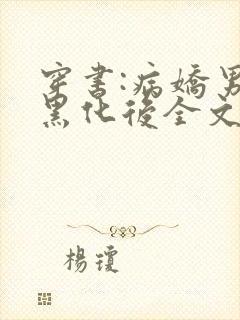 穿書:病嬌男
黑化後全文
楊瓊